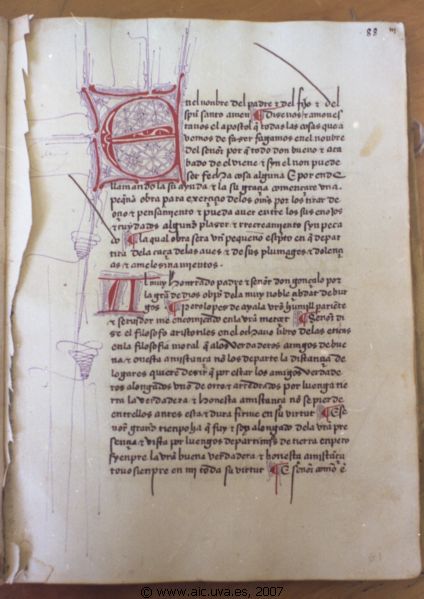 88
En el nonbre del padre & del fijo & del
spũ santo amen Disenos & amones
ta nos el apostol q̃ todas las cosas que a
vemos de faser fagamos en el nonbre
del señor por q̃ todo don bueno & aca
bado de el viene & syn el non puede
ser fecha cosa alguna E por ende
llamando la su ayuda & la su graçia començare vna
peq̃na obra para exerçiçio de los om̃s por los tirar de
oçio & pensamiento & pueda auer entre los sus enojos
& cuydados algund plaser & rrecreamiento syn peca
do la qual obra sera vn pequeño esc̃pto en q̃ depar
tira dela caça delas aues & de sus plumages & dolençi
as & amelesinamientos.
Al muy honrrado padre & señor don gonçalo por
la grã de dios obp̃o dela muy noble çibdat de bur
gos. Pero lopes de ayala vrõ humill pariẽte
& seruidor me encomiendo en la vrã merçet Señor di
se el filosofo aristotiles en el ochauo libro delas eticas
en la filosofia moral q̃ alos verdaderos amigos de bue
na & onesta amistança no los departe la distançia de
logares quiere desir q̃ por estar los amigos verdade
ros alongados vno de otro & arredrados por luenga tie
rra la verdadera & honesta amistança nõ se pierde
entrellos antes esta & dura firme en su virtut E se
nor grand tienpo ha q̃ fuy & soy alongado dela vrã pre
sençia & vista por luengos departimis̃ de tierra enpero
syenpre la vrã buena verdadera & honesta amistãça
touo sienpre en mi toda su virtut E señor como
© www.aic.uva.es, 2007